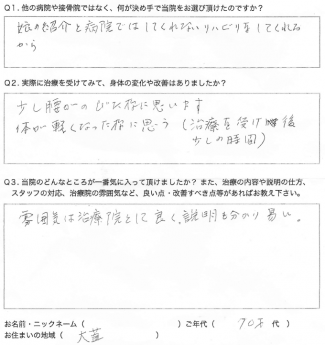 Q1. 他の病院や接骨院ではなく、何が決め手で当院をお選び頂けたのですか?
の紹介と病院ではしてくれないリハビリをしてくれる
から
Q2. 実際に治療を受けてみて、身体の変化や改善はありましたか?
少し腰がのびた様に思います
体が軽くなった様に思う(治療を受け後
少しの時間)
Q3. 当院のどんなところが一番気に入って頂けましたか? また、治療の内容や説明の仕方、
スタッフの対応、治療院の雰囲気など、良い点・改善すべき点等があればお教え下さい。
雰囲気は治療院として良く、説明も分かり易い。
お名前・ニックネーム( )ご年代( 70才 代 )
お住まいの地域( 大 )